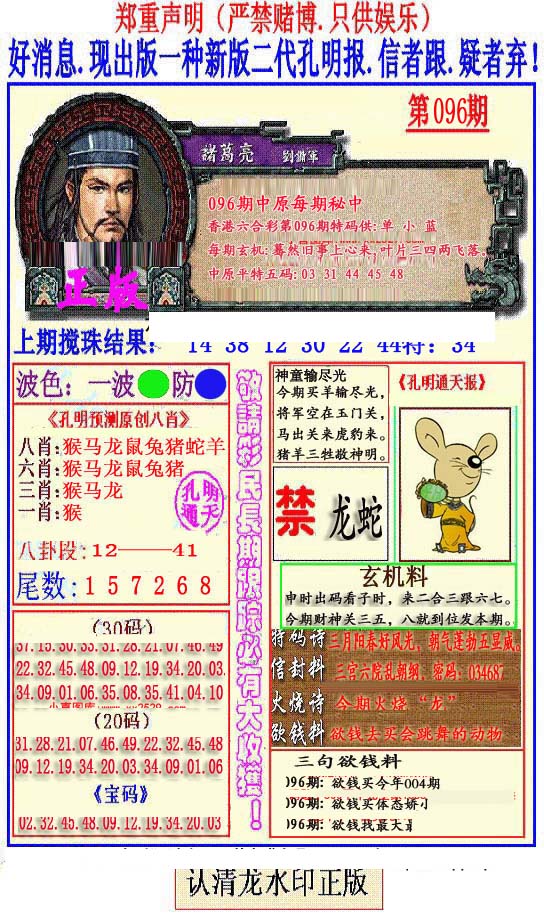 郑重声明（严禁赌博.只供娱乐）
好消息.现出版一种新版二代孔明报.信者跟.疑者弃!
第096期
諸葛亮 劉備軍
096期中原每期秘中
香港六合彩第096期特码供:单 小 蓝
每期玄机:蓦然旧事上心来,叶片三四两飞落。
中原平特五码: 03 31 44 45 48
正版
上期搅珠结果: 14 38 12 30 22 44特: 34
波色: 一波 防
《孔明预测原创八肖》
八肖:猴马龙鼠兔猪蛇羊
六肖:猴马龙鼠兔猪
三肖:猴马龙
一肖:猴
孔明通天
八卦段:12——41
尾数:1 5 7 2 6 8
(30码)
37.15.30.33.31.28.21.07.46.49
22.32.45.48.09.12.19.34.20.03
34.09.01.06.35.08.35.41.04.10
(20码)
31.28.21.07.46.49.22.32.45.48
09.12.19.34.20.03.34.09.01.06
《宝码》
02.32.45.48.09.12.19.34.20.03
敬請彩民長期跟踪必有大收獲！
神童输尽光
今期买羊输尽光，
将军空在玉门关，
马出关来虎豹来。
猪羊三牲敬神明。
《孔明通天报》
禁 龙蛇
玄机料
申时出码看子时，来二合三跟六七。
今期财神关三五，八就到位发本期。
特码诗 三月阳春好风光，朝气蓬勃五显威。
信封料 三宫六院乱朝纲，密码: 034687
火烧诗 今期火烧“龙”
欲钱料 欲钱去买会跳舞的动物
三句欲钱料
096期: 欲钱买今年004期
096期: 欲钱买体态娇小
096期: 欲钱我最大
认清龙水印正版